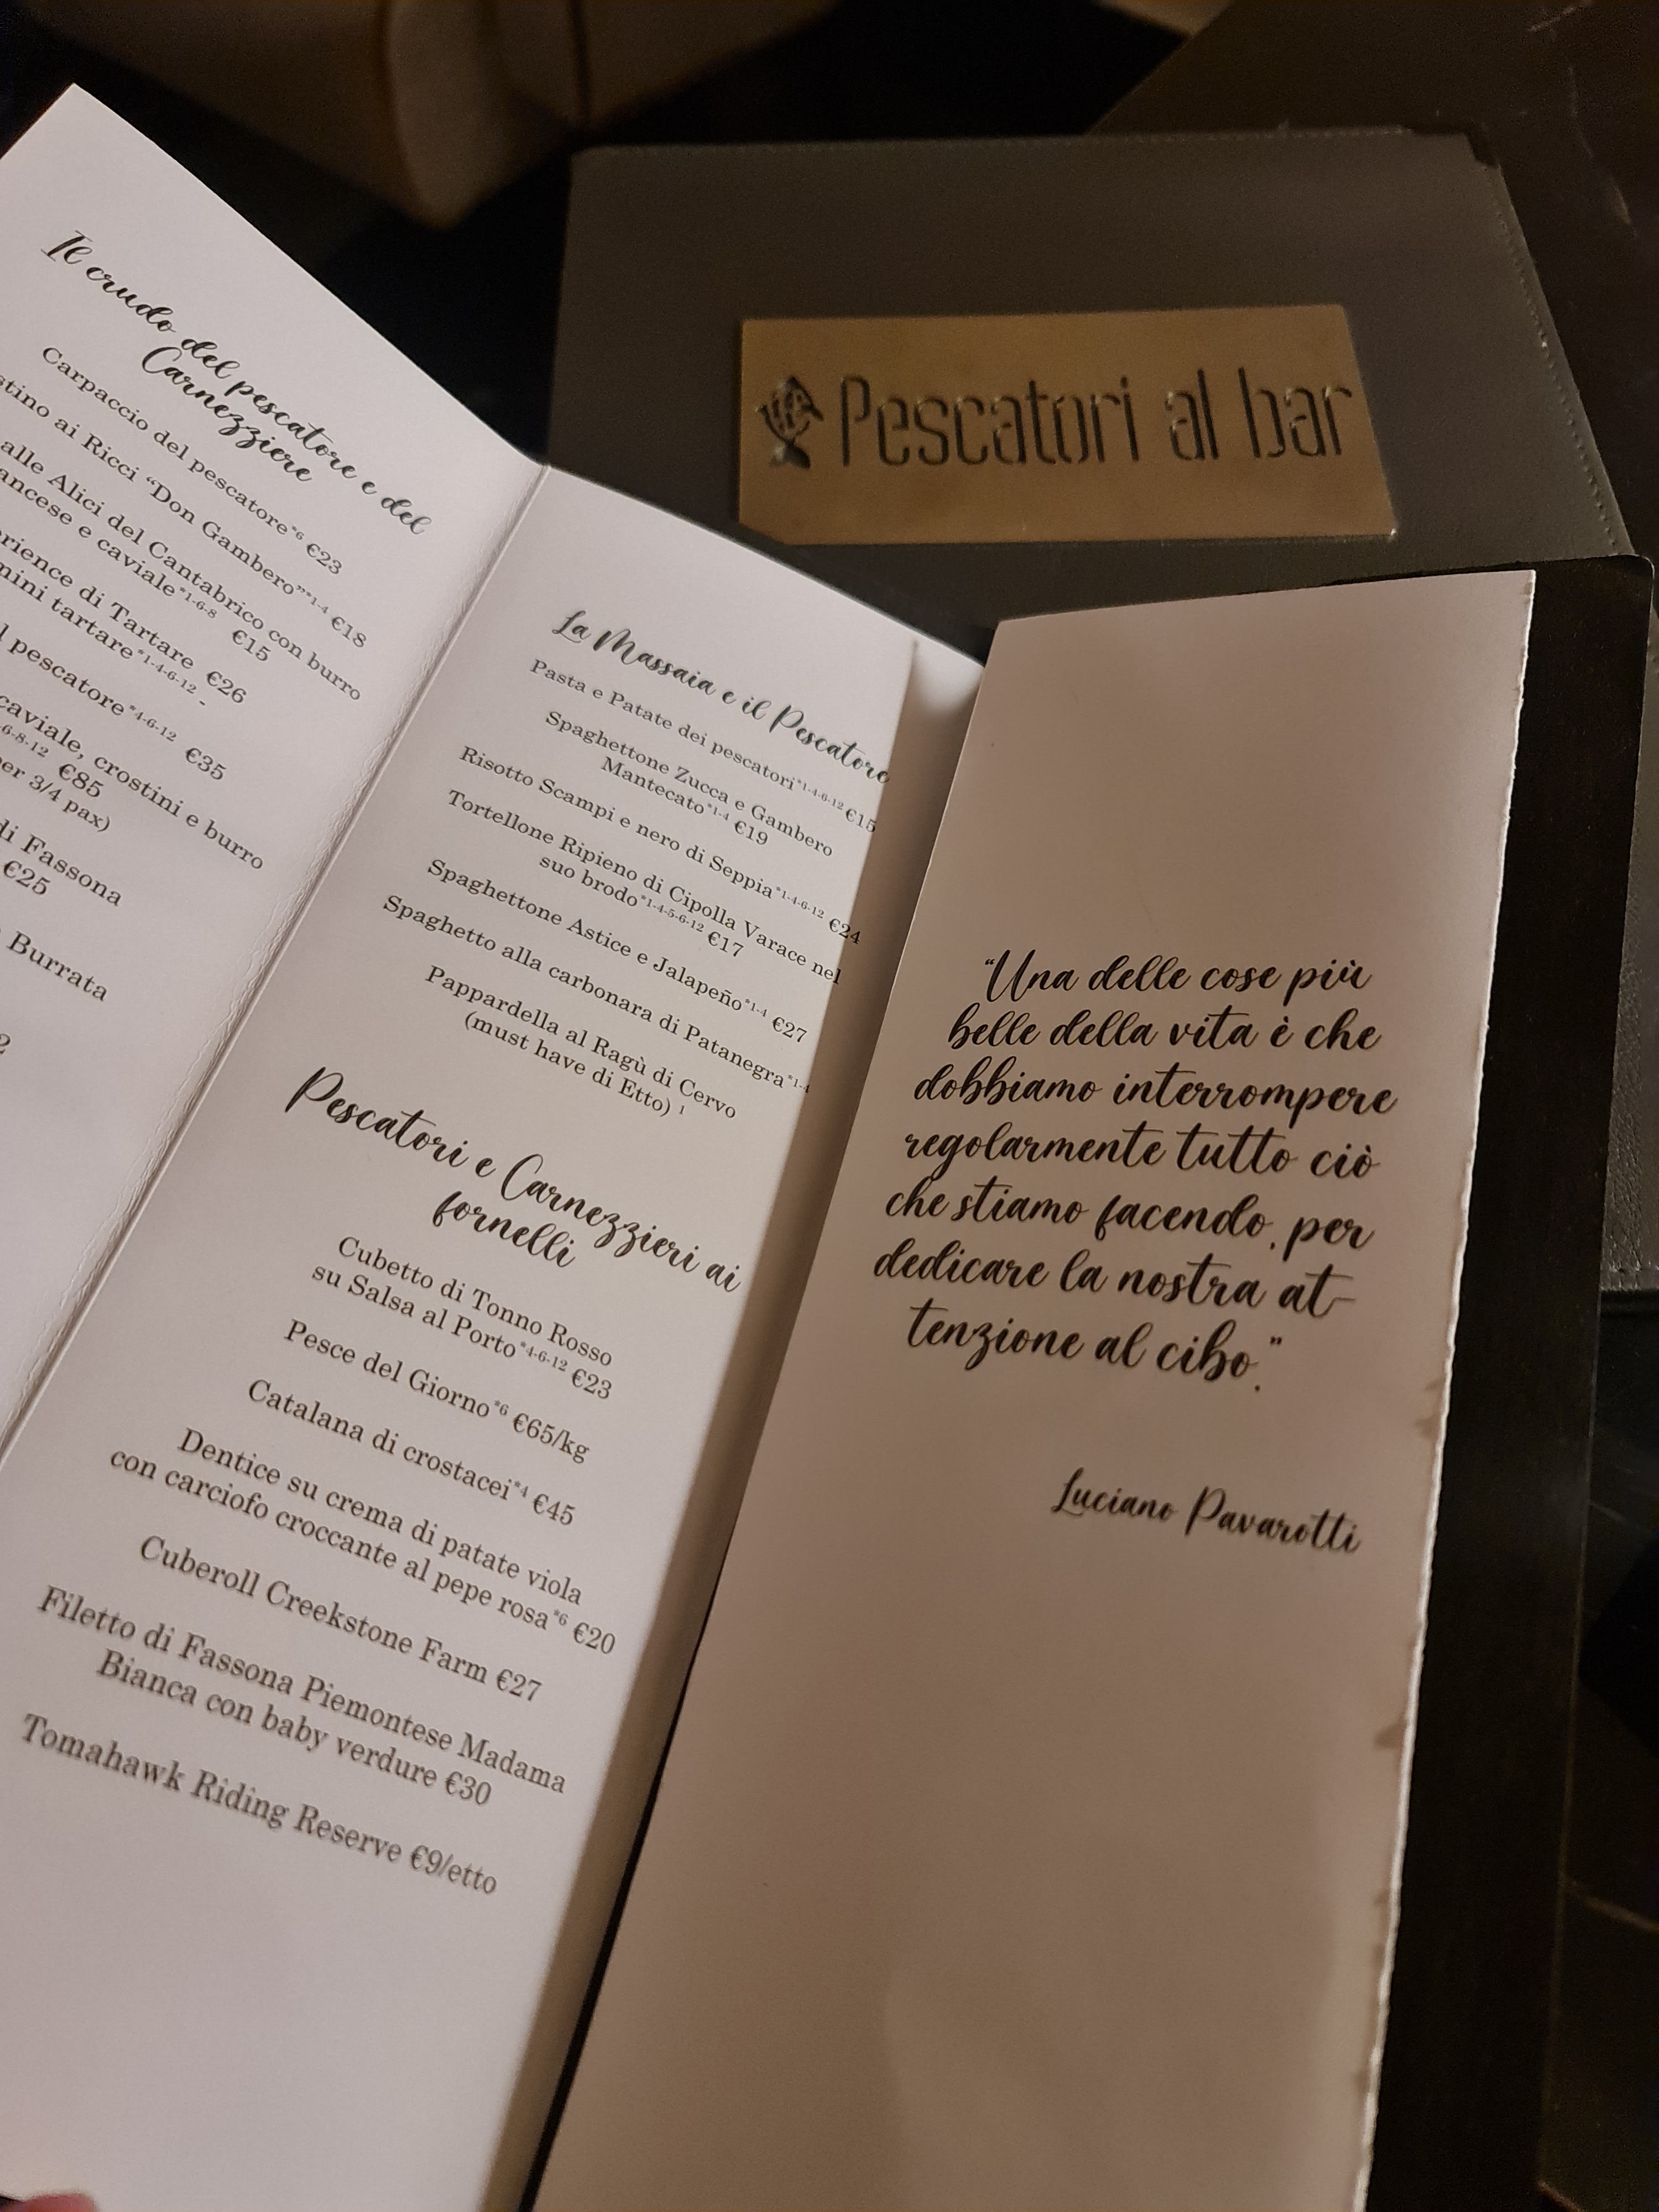 Il crudo del pescatore e del
Carnezziere
Carpaccio del pescatore*6 €23
ai Ricci “Don Gambero”*1-4 €18
alle Alici del Cantabrico con burro
e caviale*1-6-8 €15
di Tartare €26
mini tartare*1-4-6-12 -
pescatore*4-6-12 €35
caviale, crostini e burro
6-8-12 €85
per 3/4 pax)
di Fassona
€25
Burrata
La Massaia e il Pescatore
Pasta e Patate dei pescatori*1-4-6-12 €15
Spaghettone Zucca e Gambero
Mantecato*1-4 €19
Risotto Scampi e nero di Seppia*1-4-6-12 €24
Tortellone Ripieno di Cipolla Varace nel
suo brodo*1-4-5-6-12 €17
Spaghettone Astice e Jalapeño*1-4 €27
Spaghetto alla carbonara di Patanegra*1-4
Pappardella al Ragù di Cervo
(must have di Etto) 1
Pescatori e Carnezzieri ai
fornelli
Cubetto di Tonno Rosso
su Salsa al Porto*4-6-12 €23
Pesce del Giorno*6 €65/kg
Catalana di crostacei*4 €45
Dentice su crema di patate viola
con carciofo croccante al pepe rosa*6 €20
Cuberoll Creekstone Farm €27
Filetto di Fassona Piemontese Madama
Bianca con baby verdure €30
Tomahawk Riding Reserve €9/etto
Pescatori al bar
“Una delle cose più
belle della vita è che
dobbiamo interrompere
regolarmente tutto ciò
che stiamo facendo, per
dedicare la nostra at-
tenzione al cibo.”
Luciano Pavarotti